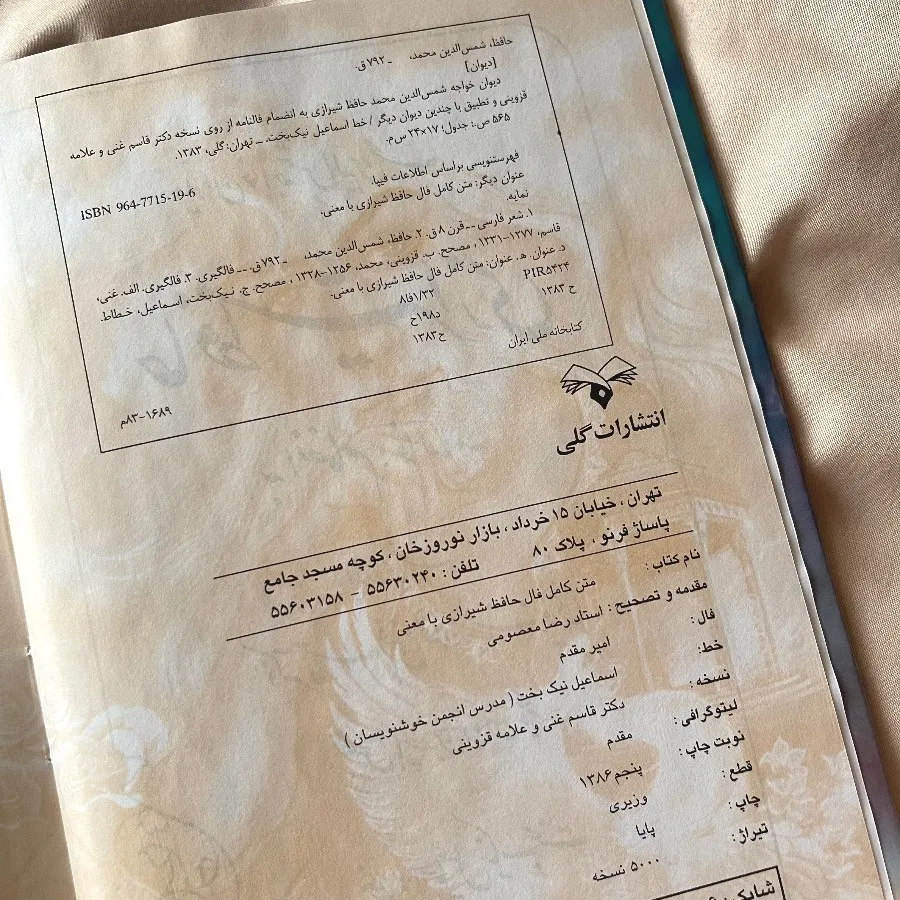 حافظ، شمس‌الدین محمد، ـ ۷۹۲ ق.
[دیوان]
دیوان خواجه شمس‌الدین محمد حافظ شیرازی به انضمام فالنامه از روی نسخه دکتر قاسم غنی و علامه
قزوینی و تطبیق با چندین دیوان دیگر / خط اسماعیل نیک‌بخت. ــ تهران: گلی، ۱۳۸۳.
۵۶۵ ص.: جدول؛ ۱۷×۲۴ س‌م.
ISBN 964-7715-19-6
فهرستنویسی براساس اطلاعات فیپا.
عنوان دیگر: متن کامل فال حافظ شیرازی با معنی.
نمایه.
۱. شعر فارسی ــ قرن ۸ ق. ۲. حافظ، شمس‌الدین محمد، ـ ۷۹۲ ق. ــ فالگیری. ۳. فالگیری. الف. غنی،
قاسم، ۱۲۷۷-۱۳۳۱، مصحح. ب. قزوینی، محمد، ۱۲۵۶-۱۳۲۸، مصحح. ج. نیک‌بخت، اسماعیل، خطاط.
د. عنوان. ه. عنوان: متن کامل فال حافظ شیرازی با معنی.
۸فا۱/۳۲ PIR۵۴۲۴
د۱۹۸ح ح ۱۳۸۳
ح۱۳۸۳
کتابخانه ملی ایران
۸۳-۱۶۸۹م
انتشارات گلی
تهران، خیابان ۱۵ خرداد، بازار نوروزخان، کوچه مسجد جامع
پاساژ فرنو، پلاک ۸۰ تلفن: ۵۵۶۳۰۲۴۰ - ۵۵۶۰۳۱۵۸
نام کتاب: متن کامل فال حافظ شیرازی با معنی
مقدمه و تصحیح: استاد رضا معصومی
فال: امیر مقدم
خط: اسماعیل نیک بخت (مدرس انجمن خوشنویسان)
نسخه: دکتر قاسم غنی و علامه قزوینی
لیتوگرافی: مقدم
نوبت چاپ: پنجم ۱۳۸۶
قطع: وزیری
چاپ: پایا
تیراژ: ۵۰۰۰ نسخه